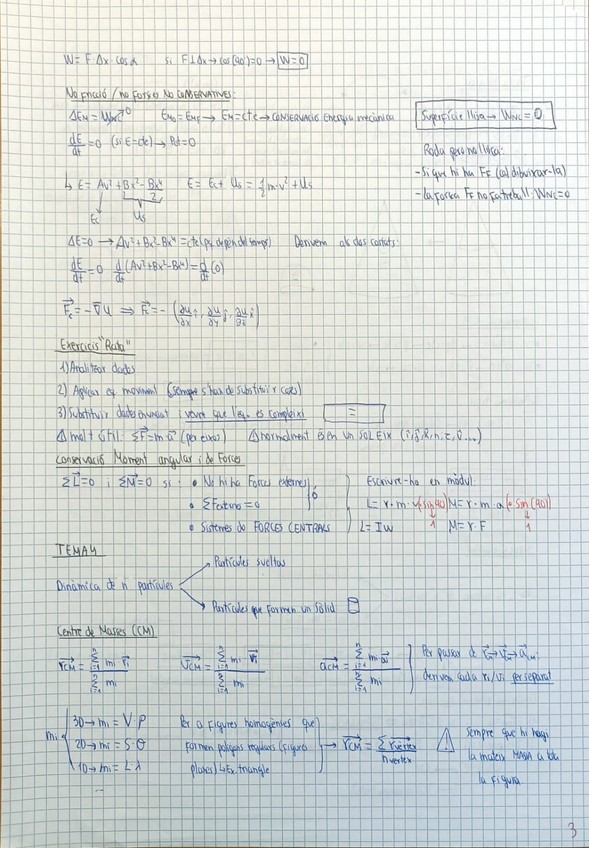 W = F · Δx · cos α si F ⊥ Δx → cos(90) = 0 → W = 0
No fricció / no Forces NO CONSERVATIVES:
ΔEM = WNC→0 EM0 = EMF → EM = cte → CONSERVACIÓ Energia mecànica
Superfície llisa → WNC = 0
dE/dt = 0 (si E = cte) → Pot = 0
Roda però no llisca:
- Sí que hi ha FF (al dibuixar-la)
- La força FF no fa treball WNC = 0
↳ E = Av² + Bx² - Bx⁴/2 E = Ec + Us = ½ m·v² + Us
Ec Us
ΔE = 0 → Av² + Bx² - Bx⁴ = cte (no depèn del temps) Derivem als dos costats:
dE/dt = 0 d/dt (Av² + Bx² - Bx⁴) = d/dt (0)
Fc = -∇U ⇒ Fc = - (∂U/∂x i, ∂U/∂y j, ∂U/∂z k)
Exercicis "Rata"
1) Analitzar dades
2) Aplicar eq moviment (sempre s'han de substituir coses)
3) Substituir dades enunciat i veure que l'eq. es compleixi =
Δ molt útil: ΣF = m·a (per eixos) Δ normalment és en un SOL EIX
Conservació Moment angular i de Forces
ΣL = 0 i ΣM = 0 si · • No hi ha Forces externes
ó
• ΣFextrens = 0
• Sistemes de FORCES CENTRALS
Escriure-ho en mòdul:
L = r · m · v (· sin 90) M = r · m · a (· sin (90))
1 1
L = I w M = r · F
TEMA 4
Dinàmica de n partícules
Partícules sueltas
Partícules que formen un sòlid
Centre de Masses (CM)
rCM = Σ mi ri / Σ mi vCM = Σ mi vi / Σ mi aCM = Σ mi ai / Σ mi
Per passar de rCM → vCM → aCM:
derivem cada ri/vi per separat
mi
3D → mi = V · ρ
2D → mi = S · σ
1D → mi = L λ
Per a figures homogènies que
formen polígons regulars (figures
planes) ↳ Ex. triangle
→ rCM = Σ rvèrtex / nvertex
Sempre que hi hagi
la mateixa MASSA a tota
la figura
3